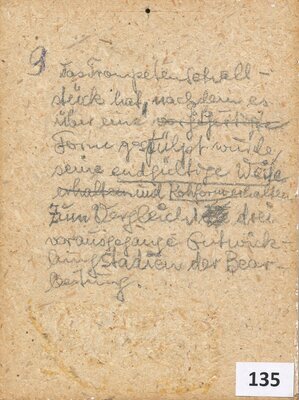 9 Das Trompetenschall-
stück hat, nachdem es
über eine vorgefertigte
Form gestülpt wurde
seine endgültige Weite
erhalten und Rohform erhalten
Zum Vergleich drei
vorausgegange Entwick-
lungstadien der Bear-
beitung.
135